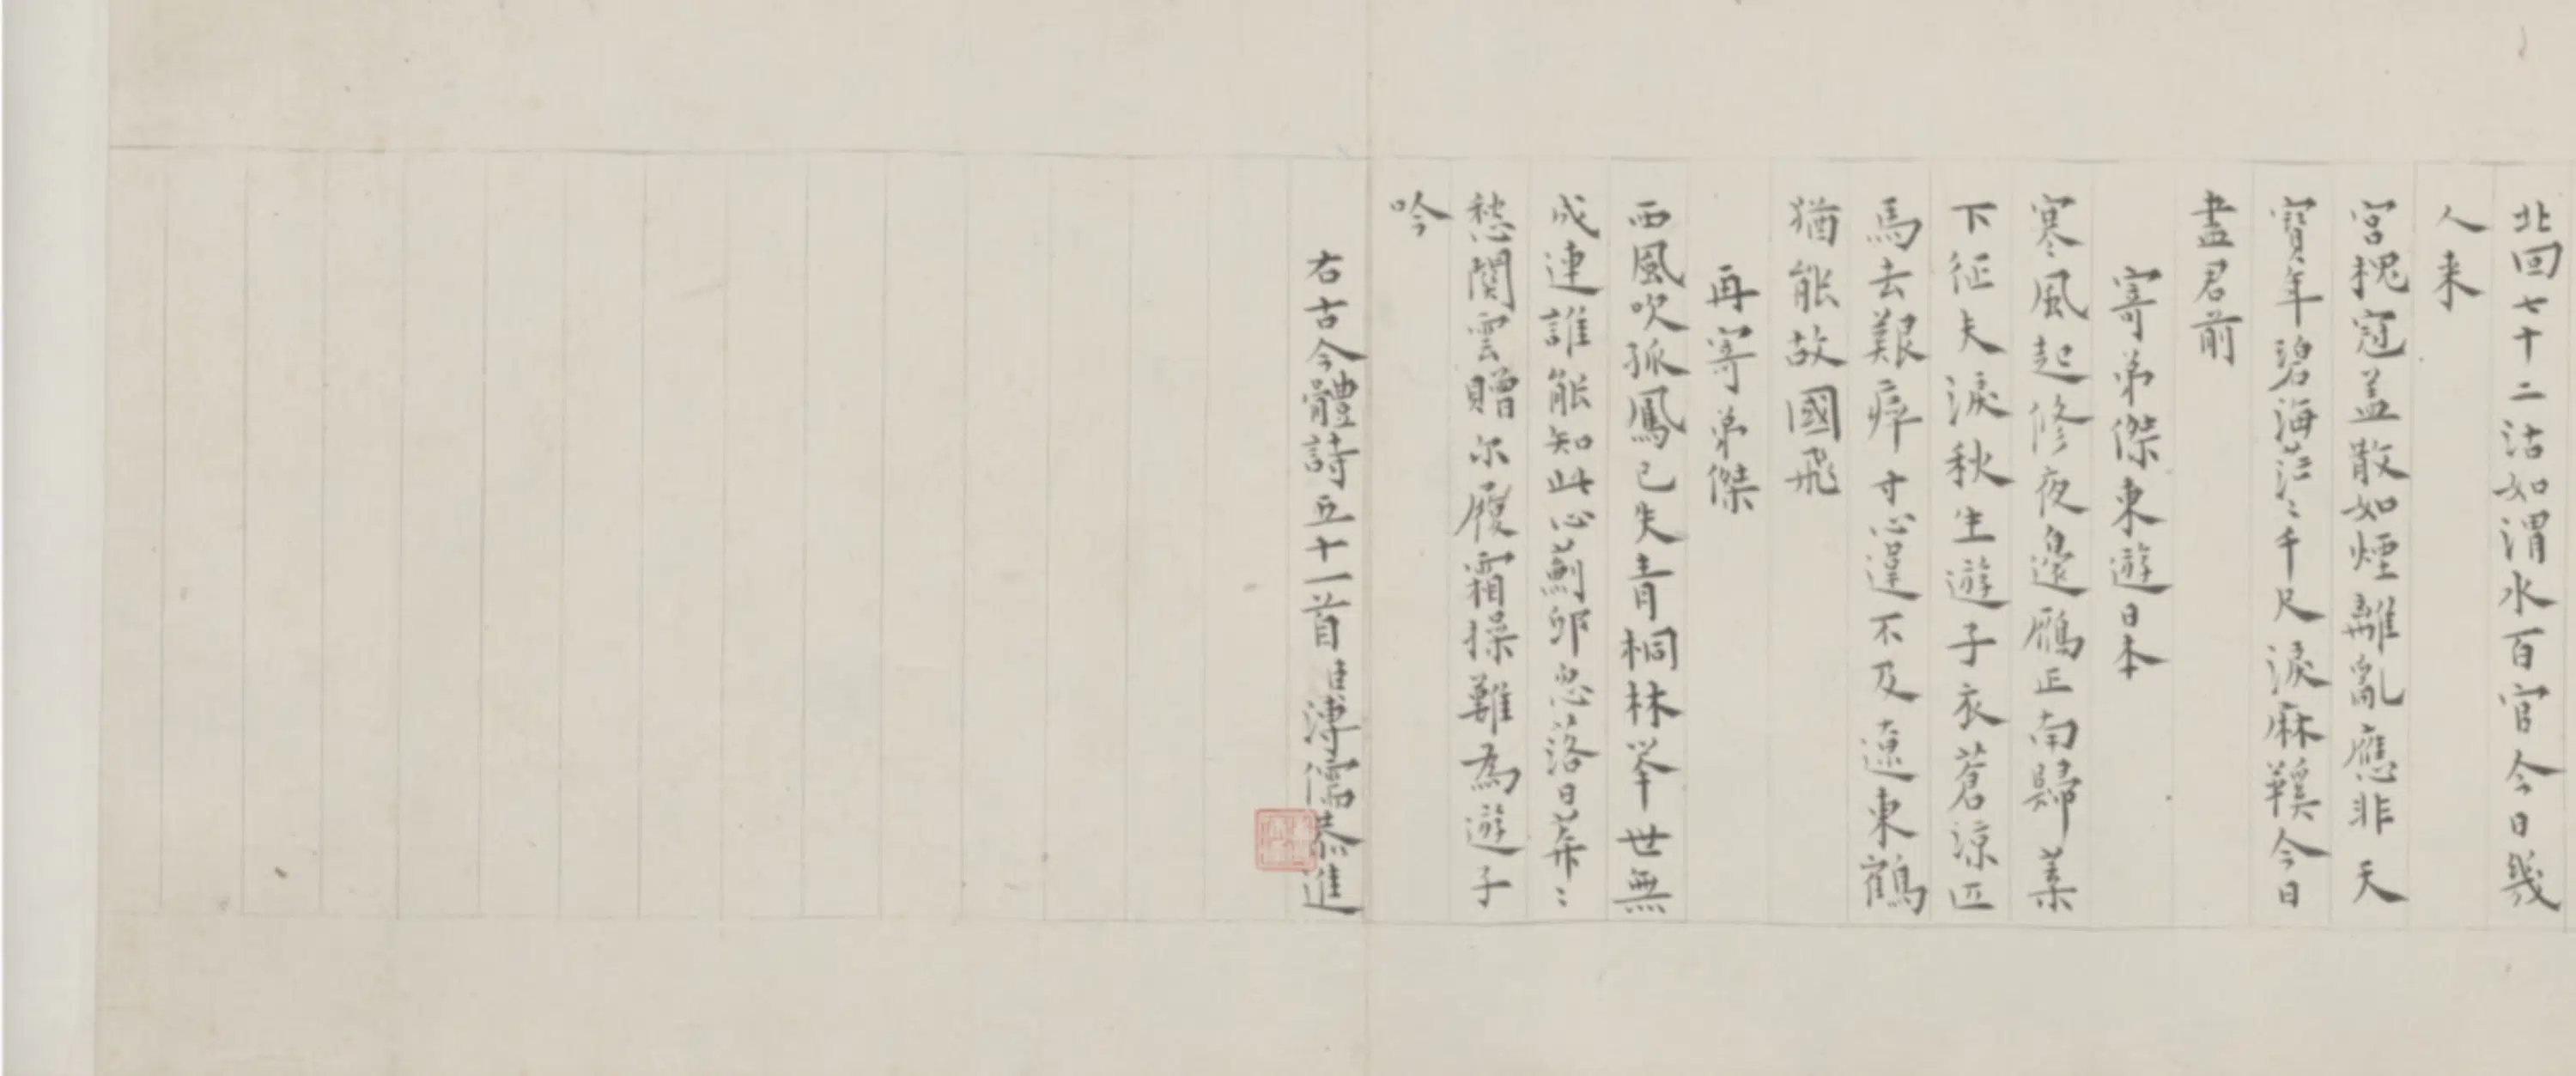 北回七十二沽如渭水百官今日幾
人来
宮槐冠盖散如煙離亂應非天
寶年碧海茫〻千尺淚麻鞋今日
盡君前
寄弟傑東遊日本
寒風起修夜邊鴈正南歸葉
下征夫淚秋生遊子衣蒼涼匹
馬去艱瘁寸心違不及遼東鶴
猶能故國飛
再寄弟傑
西風吹孤鳳已失青桐林舉世無
成連誰能知此心薊邱忽落日莽〻
愁關雲贈尔履霜操難為遊子
吟
右古今體詩五十一首臣溥儒恭進